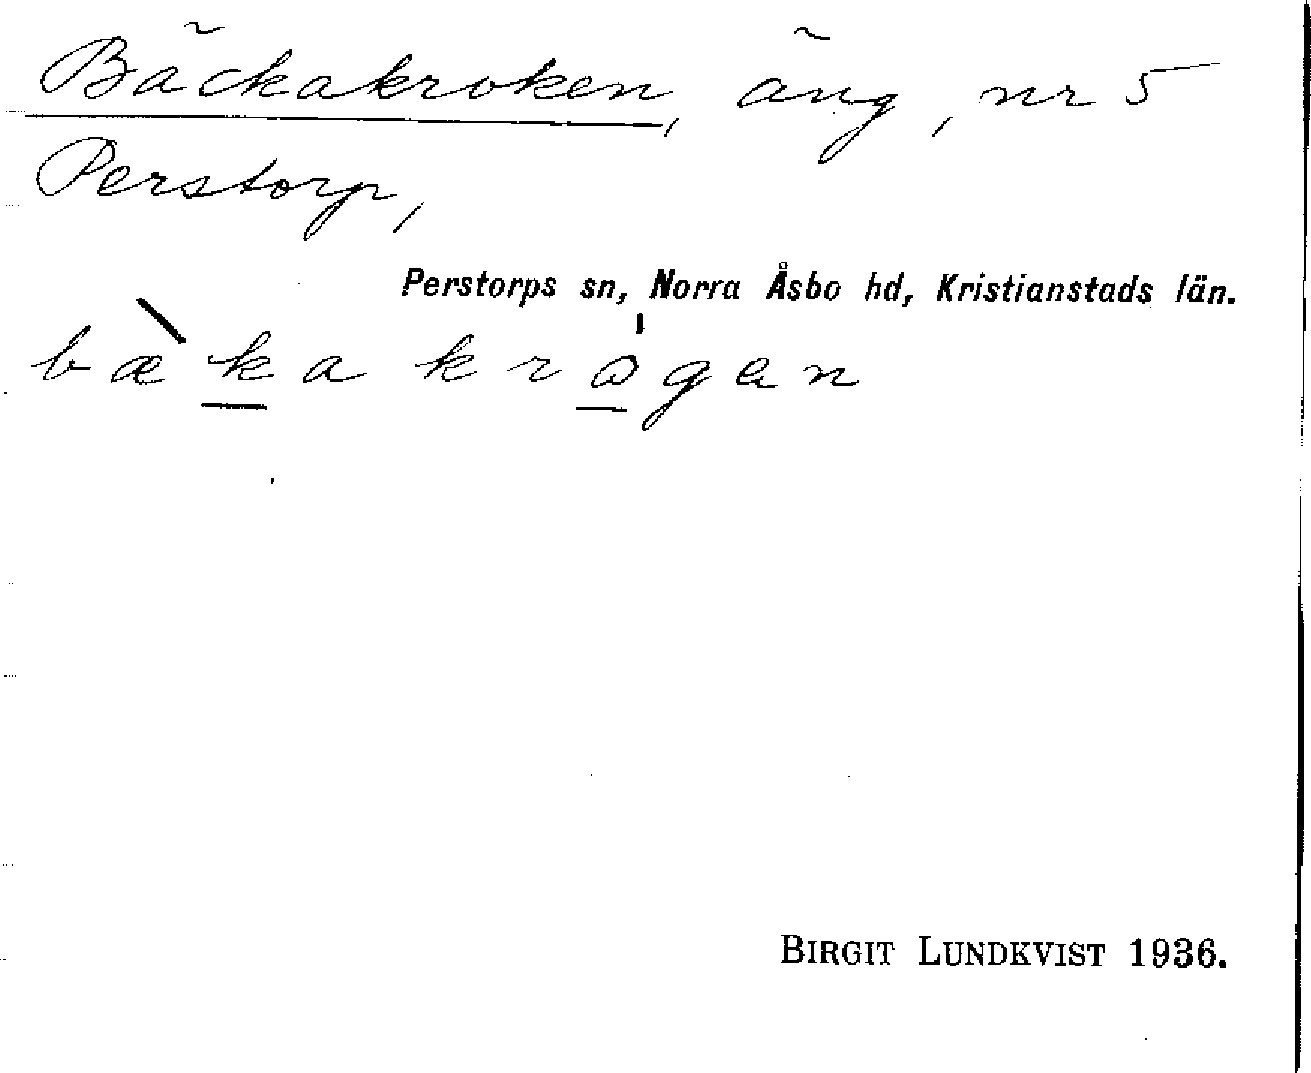 Bäckakroken, äng, nr 5
Perstorp,
Perstorps sn, Norra Åsbo hd, Kristianstads län.
bæ̀k̲a kro̲gen
BIRGIT LUNDKVIST 1936.